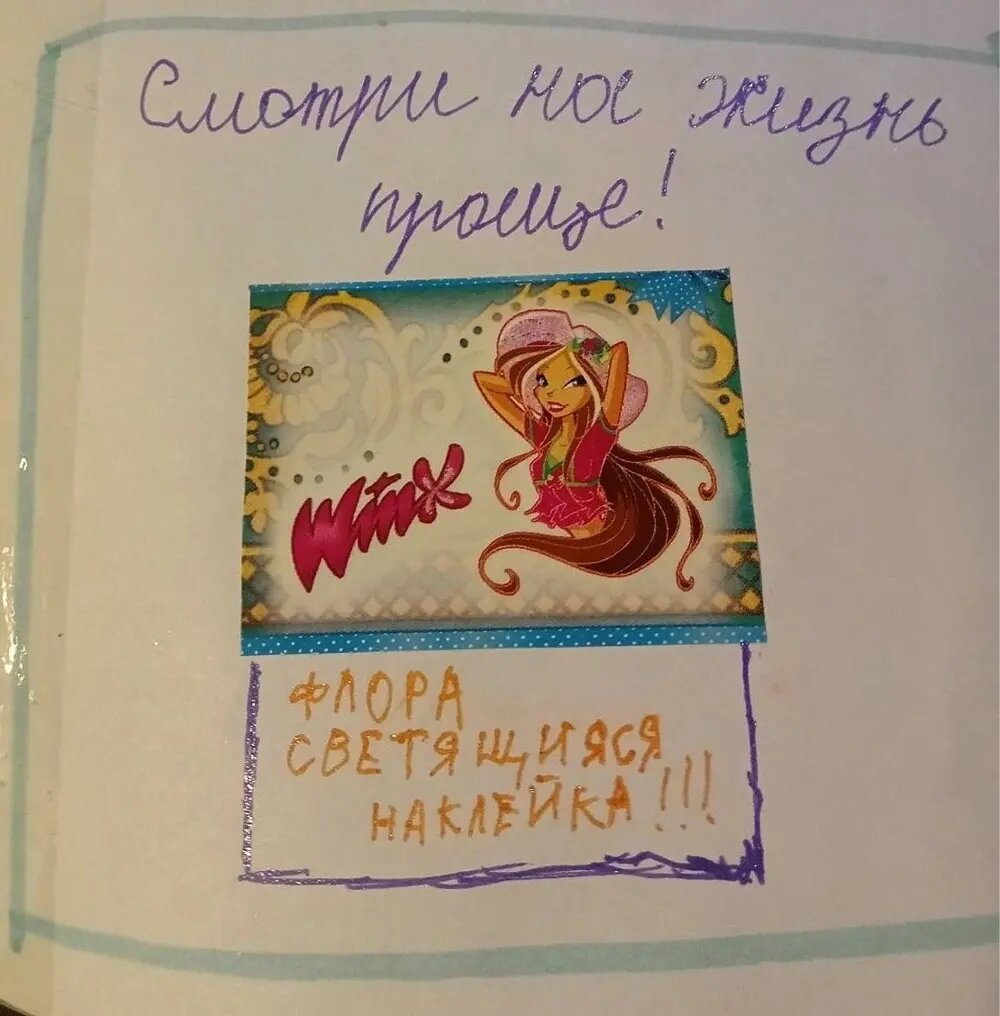 Смотри нос жизнь
проще!
Winx
ФЛОРА
СВЕТЯЩИЯСЯ
НАКЛЕЙКА!!!